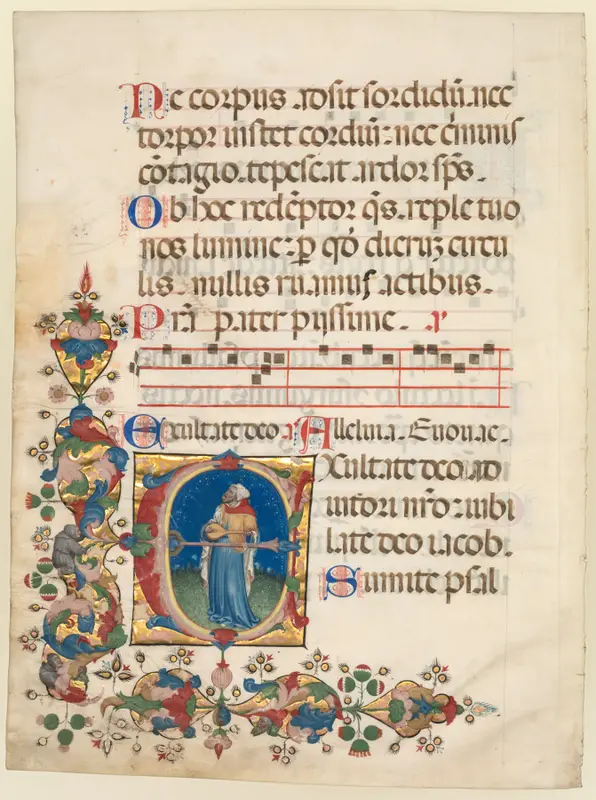 Ne corpus adsit sordidū: nec
torpor instet cordiū: nec c̄minis
cōtagio. tepescat ardor sp̄s.
Ob hoc redēptor q̄s. reple tuo
nos lumine: ꝑ qd̄ dieruz circu
lis. nullis ruamus actibus.
pater pijssime.
Exultate deo Alleluia. Euouae.
Exultate deo ad
iutori nr̄o: iubi
late deo iacob.
Sumite psal